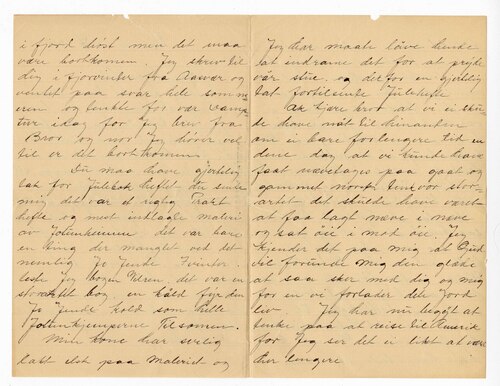 i fjord höst men det maa
være bortkommen. Jeg skrev til
dig i fjorvinter fra Aasvær og
ventet paa svar hele somm
eren og tenkte for vær
tur idag for Jeg brev fra
Bror og nu Jeg hörer vel
til er det bortkommen
Du maa have hjertelig
tak for Julebok heftet Du sende
mig det var et rigtig Prakt
hefte og mest intlagte materi
av Jotunheimen det var bare
en ting der manglet ved det
nemlig Jo Jende vinter
leste Jeg bogen det var en
storartet bog en kald fyr den
Jo Jende kold som hele
Jotunkjemperne tilsamen.
Min kone har svelig
lat elsk paa Materiet og
Jeg har maate love hende
at indrame det for at pryde
vår stue, og der for en hjertelig
tak fortilsende Julehefte
Ak kjære bror at vi ei sku
de have nåt til hinanden
om ei bare forlengere tid en
dene dag at vi kunde have
faat udvekslet paa godt og
gammelt norsk tenk vor stor
artet det skulde have været
at faa lagt næve i næve
og sat öie i mod öie. Jeg
kjender det paa mig at Gud
vil forunde mig den glæde
at saa sker med dig og mig
for en vi forlader dete Jord
liv Jeg har nu begyt at
tenke paa at reise til Amerik
for Jeg ser det ei likt at være
her lengere